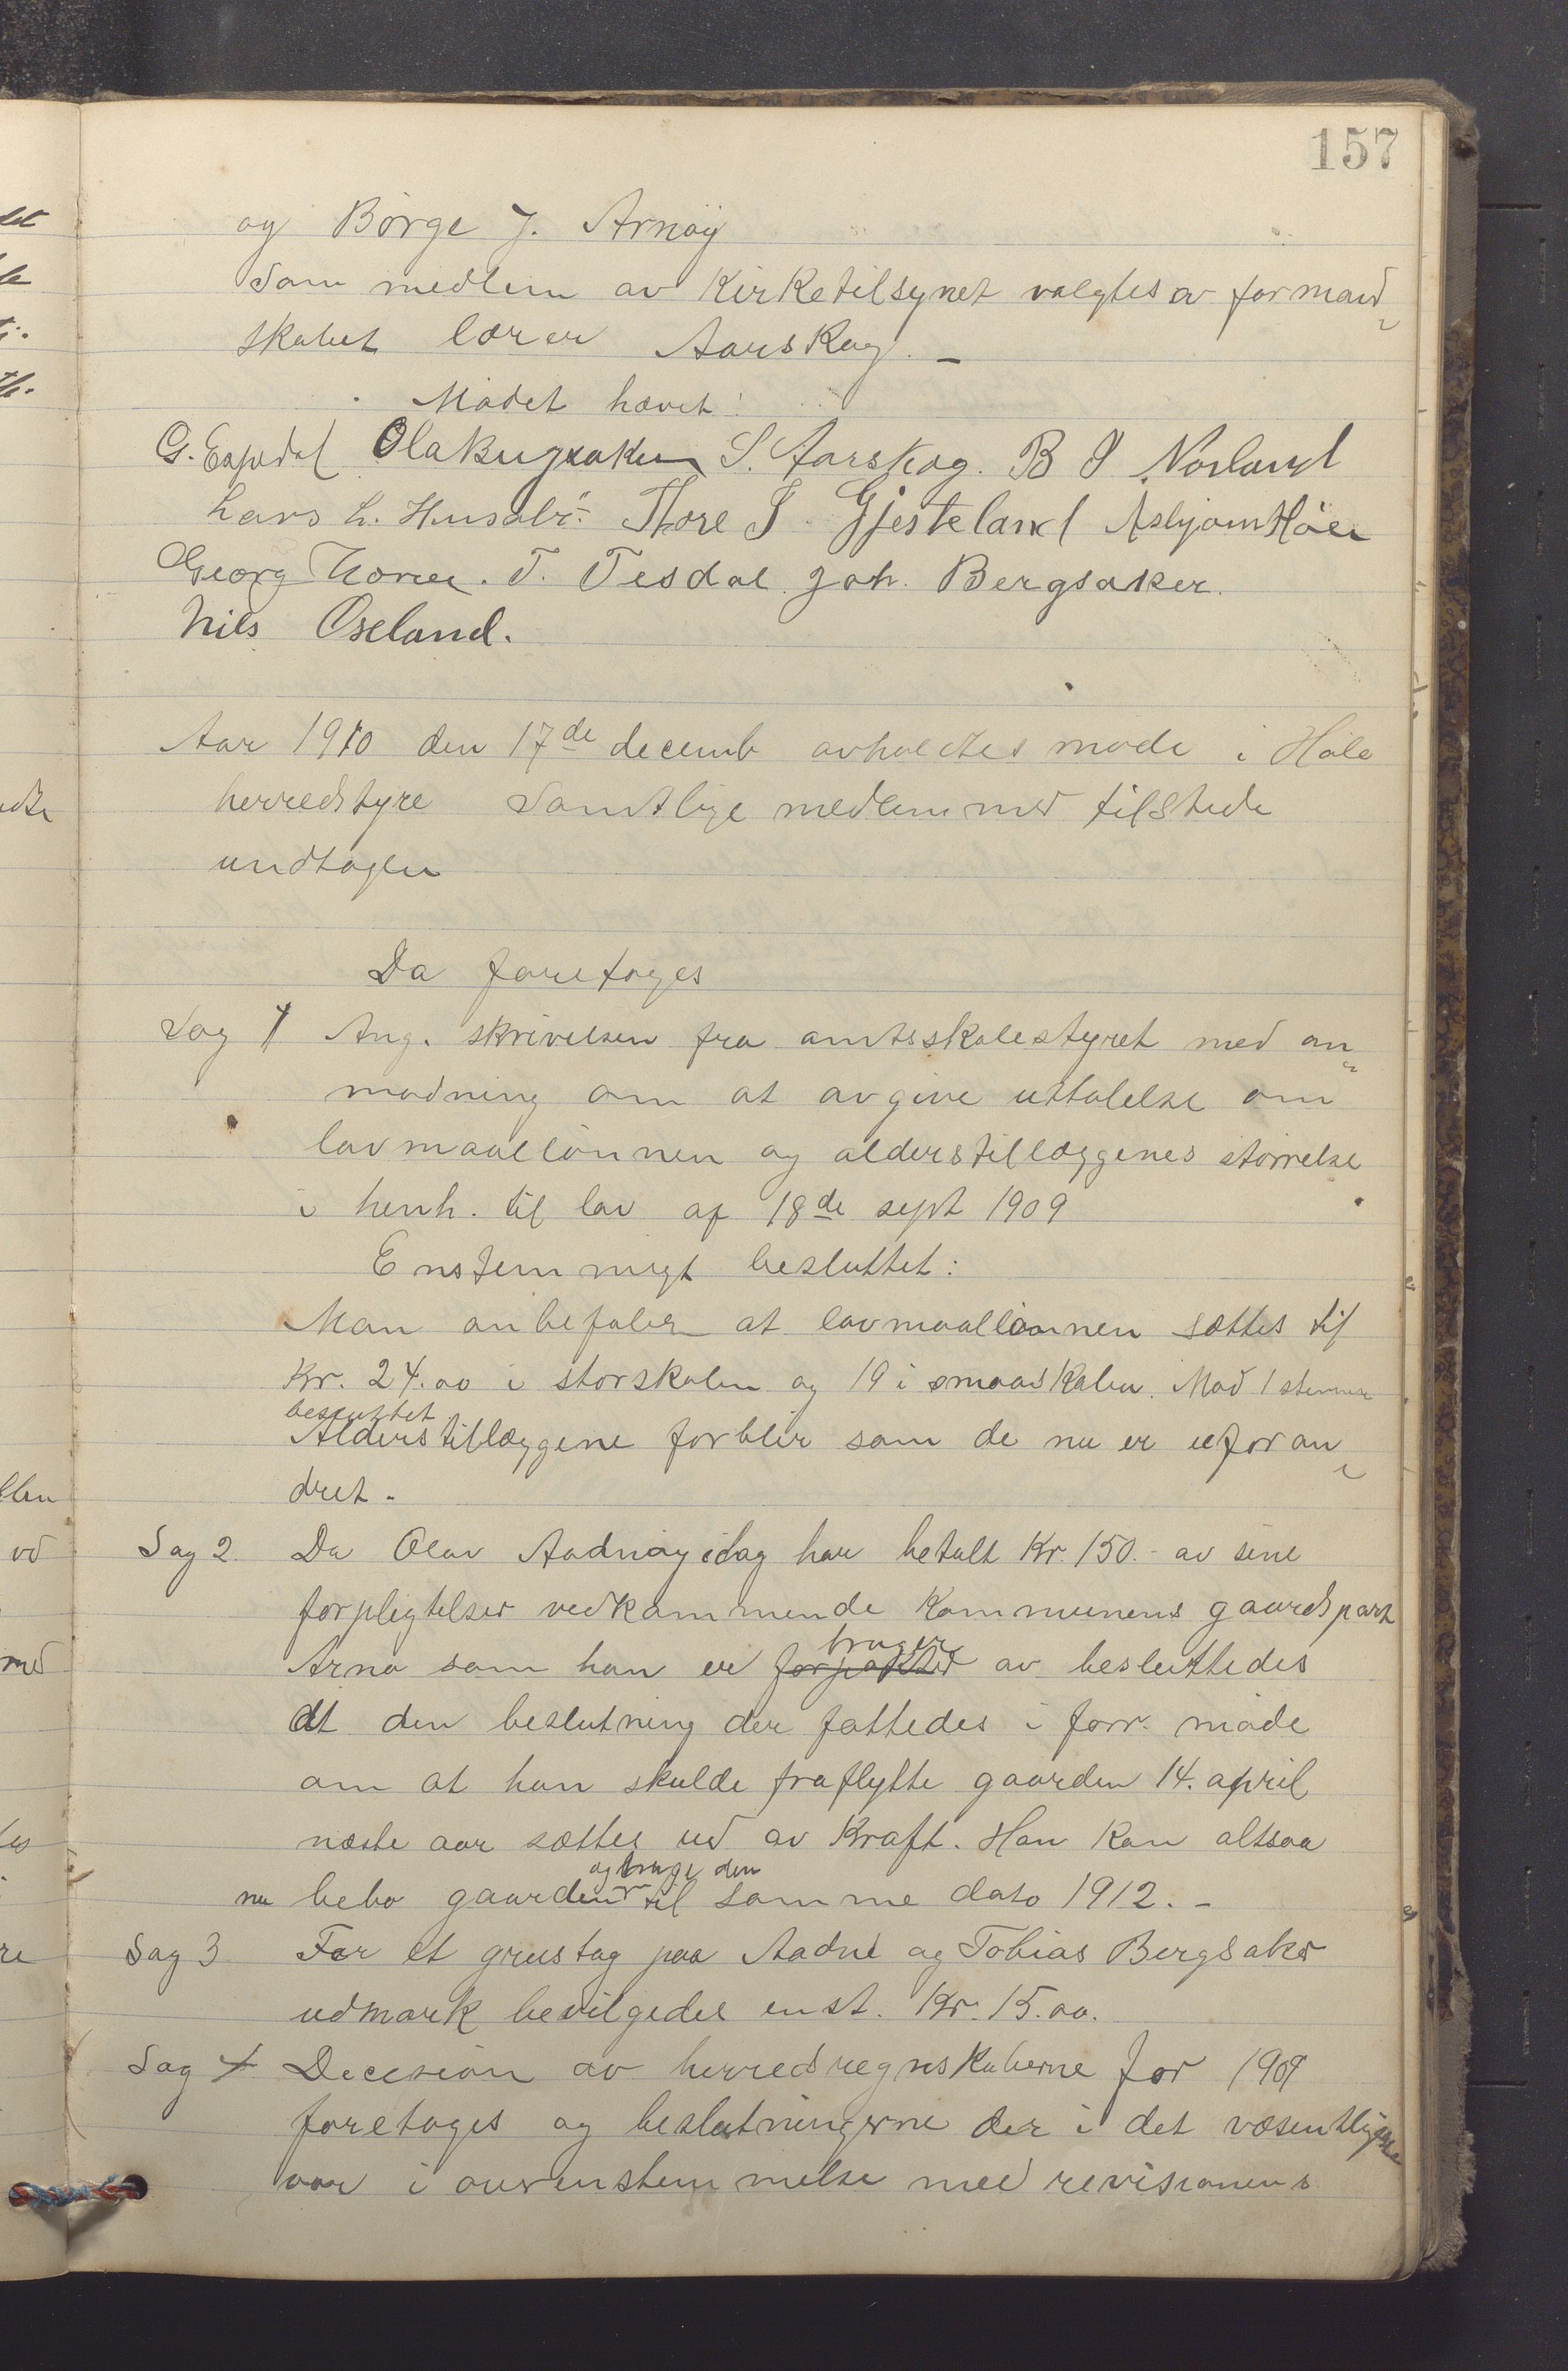 157
og Börge J. Arnöy
Som medlem av Kirketilsynet valgtes av formand
skabet lærer Aarskog. –
Mødet hævet!
G. Espedal Ola S. Aarskog. B J Norland
Lars L. Husabö. Thore J. Gjesteland Asbjørn Höle
Georg T. Tesdal Joh. Bergsaker.
Nils Oseland.
Aar 1910 den 17de decemb avholdtes møde i Høle
herredstyre Samtlige medlemmer tilstede
undtagen
Da foretoges
Sag 1 Ang. skrivelsen fra amtsskolestyret med an
modning om at avgive uttalelse om
lavmaallönnen og alderstillæggenes störrelse
i henh. til lov af 18de sept 1909
Enstemmigt besluttet:
Man anbefaler at lavmaallönnen sættes til
Kr. 24.00 i storskolen og 19 i smaaskolen. Mod 1 stemme
besluttet
Alderstillæggene forblir som de nu er uforan
dret.
Sag 2. Da Olav Aadnöy idag har betalt Kr. 150.- av sine
forpligtelser vedkommende Kommunens gaardspart
bruger
Arnö som han er forpakter av besluttedes
at den beslutning der fattedes i forr. möde
om at han skulde fraflytte gaarden 14. april
næste aar sættes ud av Kraft. Han kan altsaa
og bruge den
nu bebo gaarden til samme dato 1912. –
Sag 3 For et grustag paa Aadne og Tobias Bergsaker
udmark bevilgedes enst. Kr. 15.00.
Sag 4 Decision av herredsregnskaberne for 1909
foretoges og beslutningerne der i det væsentligste
var i overenstemmelse med revisionens